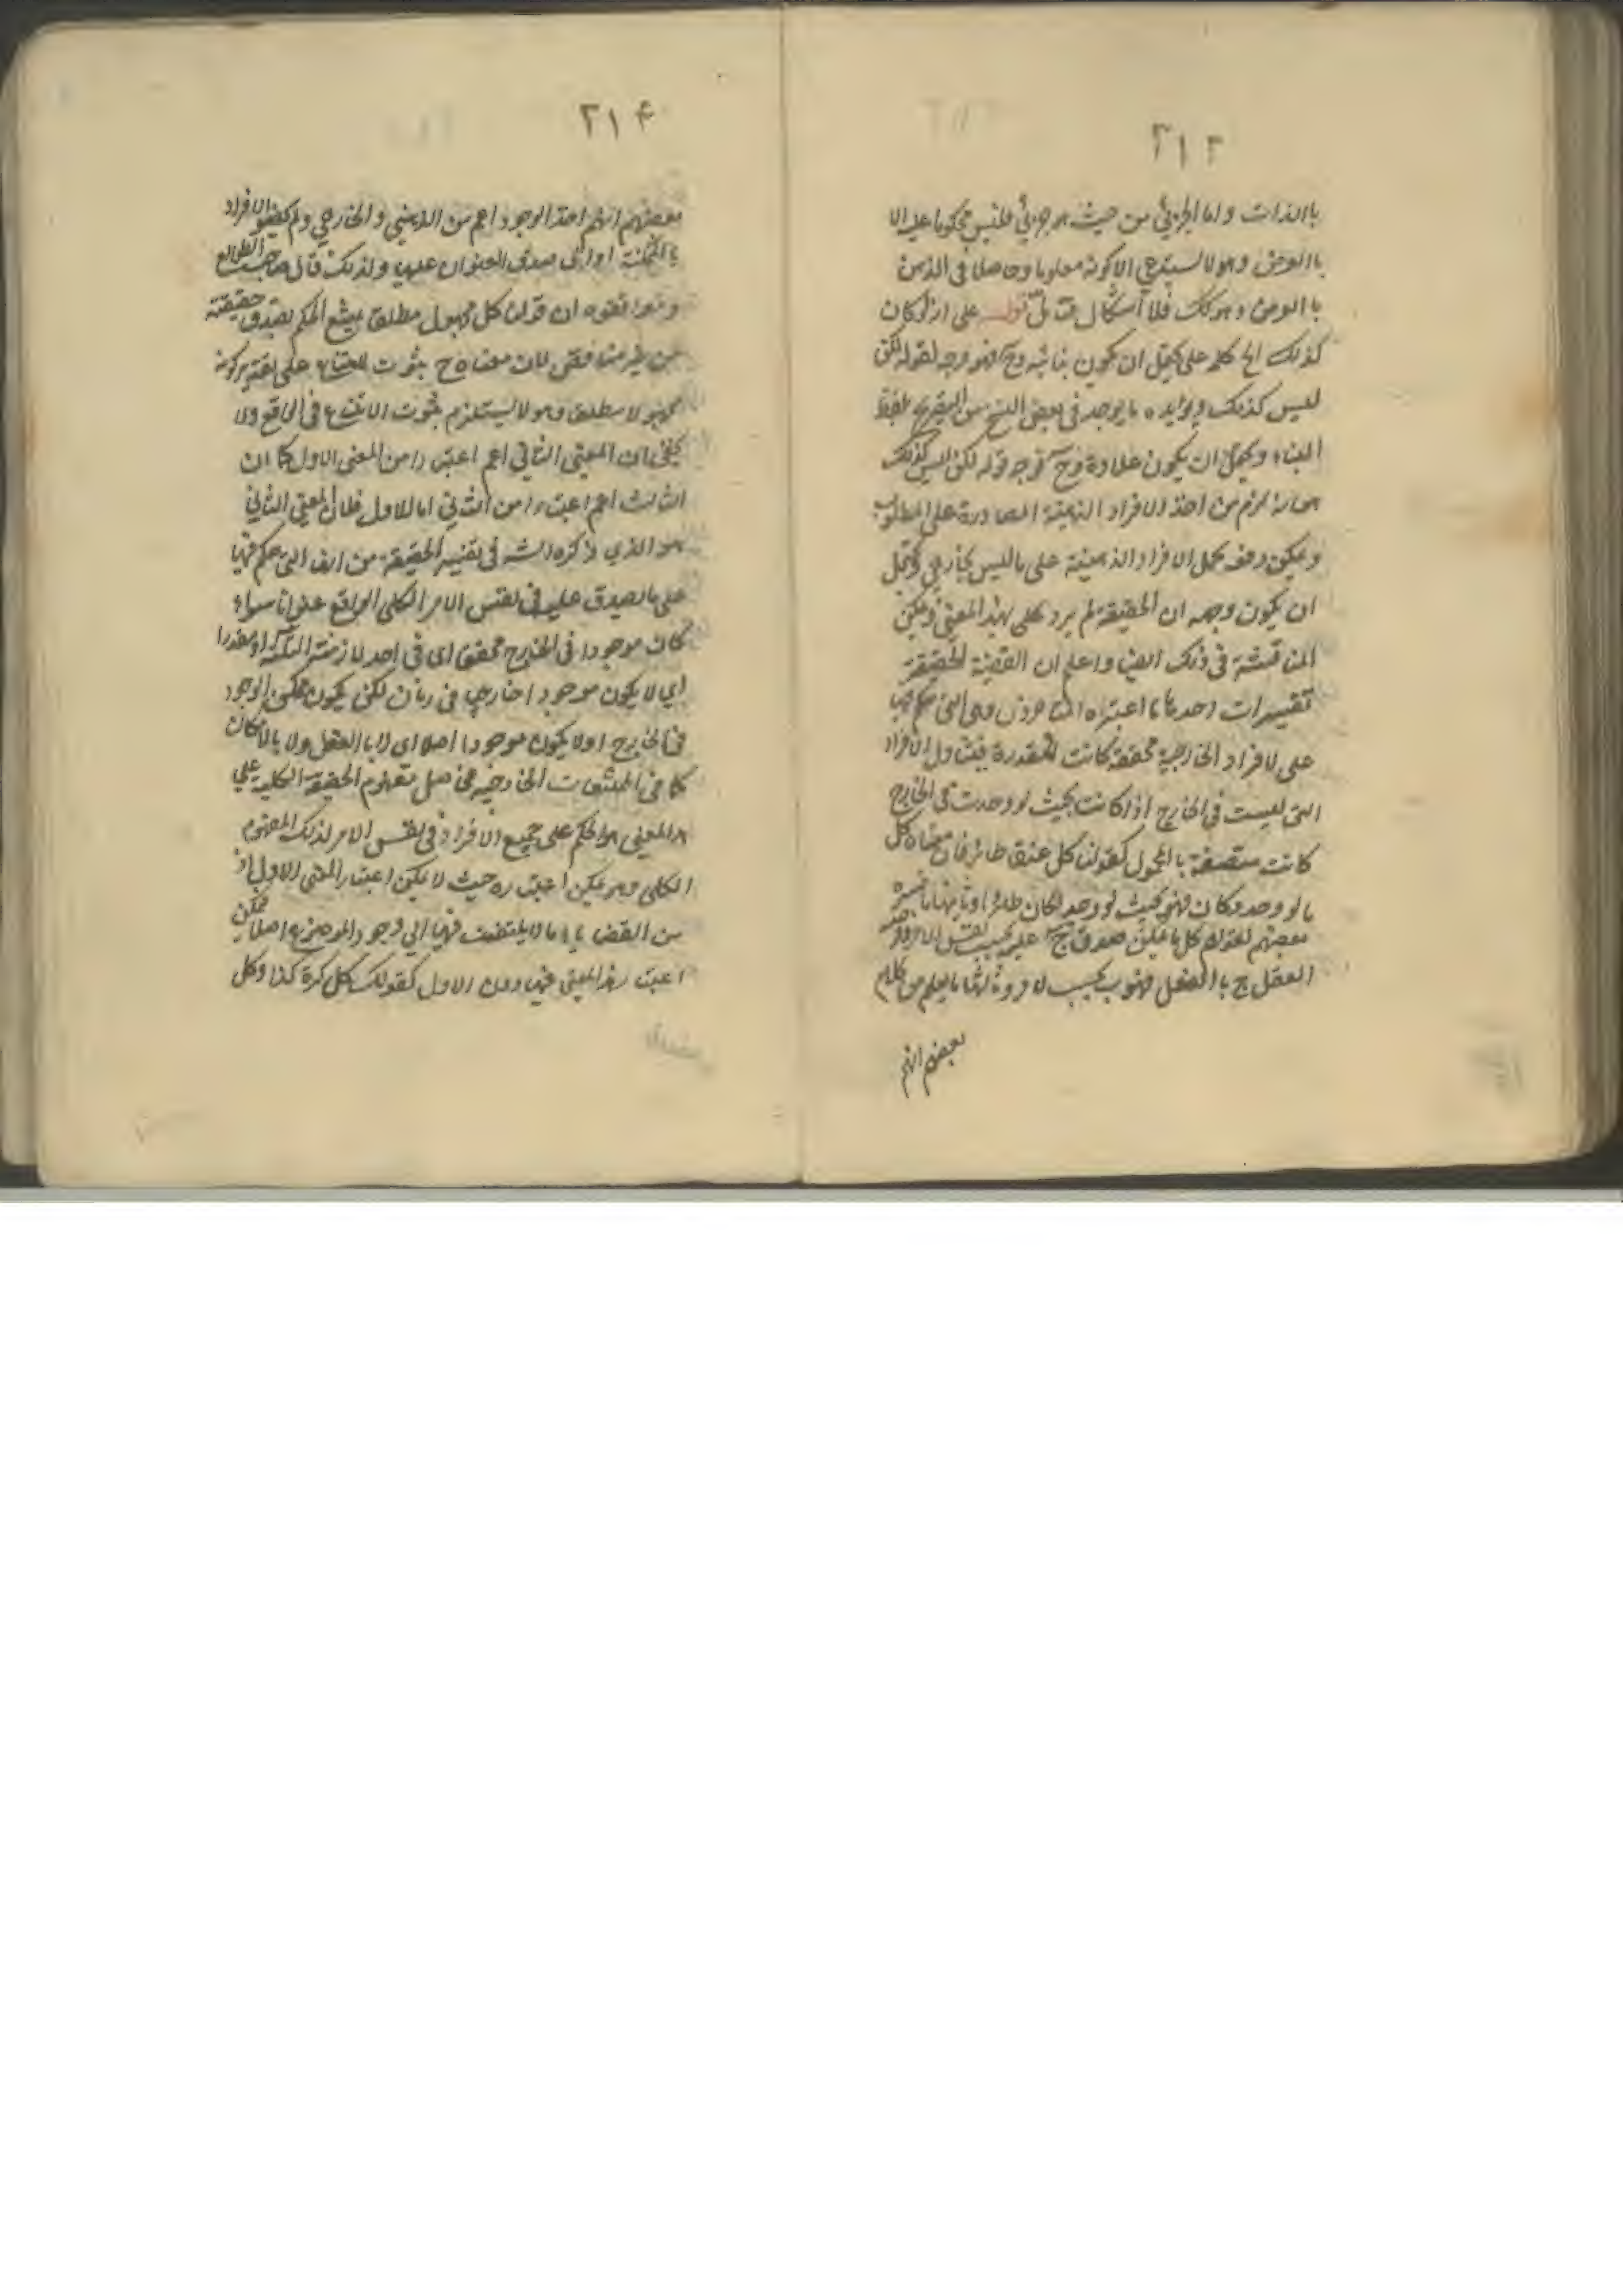 ٢١٣
باالذات واما الجزئي من حيث هو جزئي فليس محكوما عليه الا
باالعرض وهو لا يستدعي الا كونه معلوما وحاصلا في الذهن
باالعرض وهو كك فلا اشكال فتامل قوله على انه لو كان
كذلك الخ كلمة على يحتمل ان يكون بنائية وح فهو وجه لقوله لكن
ليس كذلك ويؤيده ما يوجد في بعض النسخ من التصريح بلفظ
البناء ويحتمل ان يكون علاوة وح فوجه قوله لكن ليس كذلك
هو انه لزم من اخذ الافراد الذهنية المصادرة على المطلوب
ويمكن دفعه بحمل الافراد الذهنية على ما ليس بخارجي ويحتمل
ان يكون وجهه ان الحقيقة لم يرد بهذا المعنى ويمكن
المناقشة في ذلك ايضا واعلم ان القضية الحقيقة
تفسيرات احدها ما اعتبراه المتاخرون وهي التي حكم فيها
على لافراد الخارجية محققة كانت او مقدرة فيتناول الافراد
التي ليست في الخارج اذا كانت بحيث لو وجدت في الخارج
كانت متصفة باالمحمول كقولنا كل عنقا طائر فان معناه كل
ما لو وجد وكان فهو بحيث لو وجد لكان طائرا وثانيها ما فسره
بعضهم لقوله كل ما يمكن صدق ج عليه بحسب نفس الامر
العقل ج باالفعل فهو ب بحسب لامر وثالثها ما يعلم من كلام
بعضهم انهم
٢١۴
بعضهم انهم اخذ الوجود اعم من الذهني والخارجي ولم الافراد
باالممكنة او التي صدق العنوان عليها ولذلك قال صاحب المطالع
ان قولنا كل مجهول مطلقا يمتنع الحكم يصدق حقيقته
من غير مناقض لان معناه ح بثوت الامتناع على تقدير كونه
مجهولا مطلقا وهو لا يستلزم بثوت الامتناع في الواقع ولا
يخفى ان المعنى الثاني اعم اعتبارا من المعنى الاول كما ان
الثالث اعم اعتبارا من الثاني اما للاول فلان المعنى الثاني
هو الذي ذكره الشه في تفسير الحقيقة من انها التي حكم فيها
على ما يصدق عليه في نفس الامر الكلي الواقع عنوانا سواء
كان موجودا في الخارج محققا اي في احد لازمنة الثلثة او مقدرا
اي لا يكون موجودا خارجيا في زمان لكن يكون ممكن الوجود
في الخارج او لا يكون موجودا اصلا اي لا باالعقل ولا بالامكان
كما في الممتنعات الخارجية فحاصل مفهوم الحقيقة الكلية على
هذا المعنى هو الحكم على جميع الافراد في نفس الامر لذلك المفهوم
الكلي وهو يمكن اعتباره حيث لا يمكن اعتبار المعنى الاول اذ
من القضايا ما لا يلتفت فيها الى وجود الموضوع اصلا يمكن
اعتبار هذا المعنى فيها دون الاول كقولك كل كرة كذا وكل